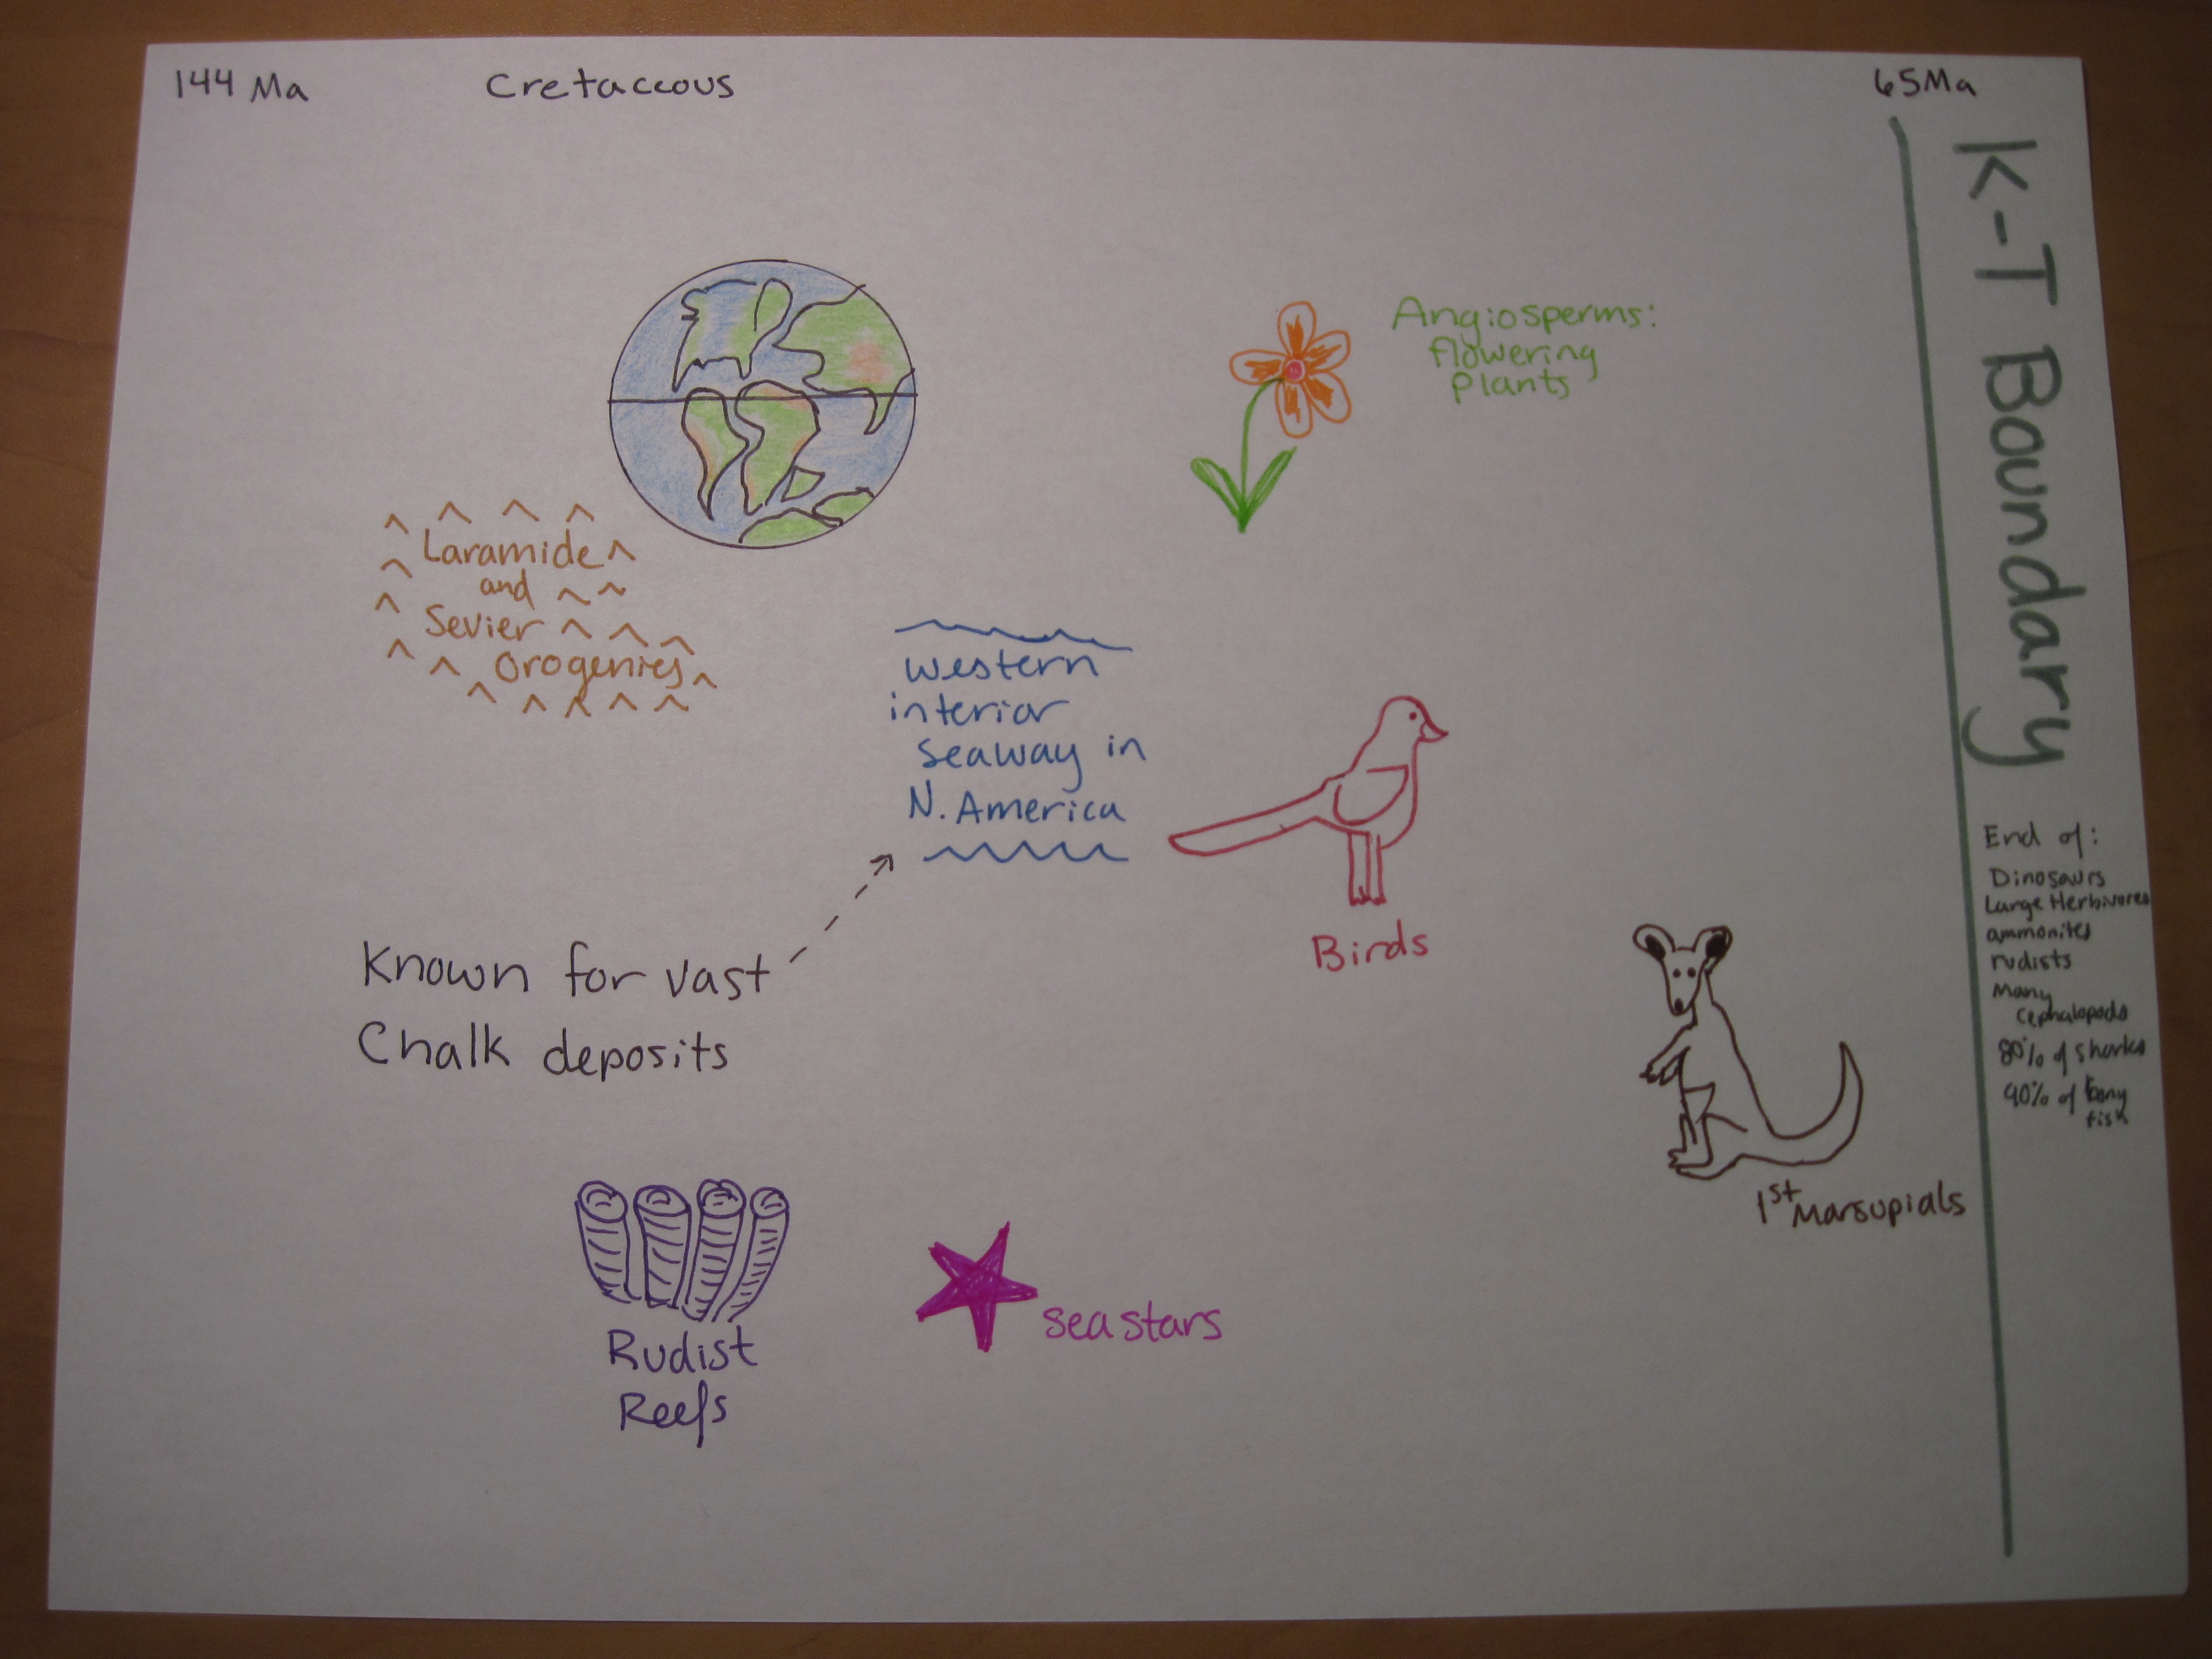 144 Ma
Cretaceous
65Ma
K-T Boundary
Angiosperms:
flowering
plants
Laramide
and
Sevier
Orogenies
Western
interior
seaway in
N. America
Birds
Known for vast
Chalk deposits
1st Marsupials
Rudist
Reefs
sea stars
End of:
Dinosaurs
Large Herbivores
ammonites
rudists
Many
cephalopods
80% of sharks
90% of bony
fish